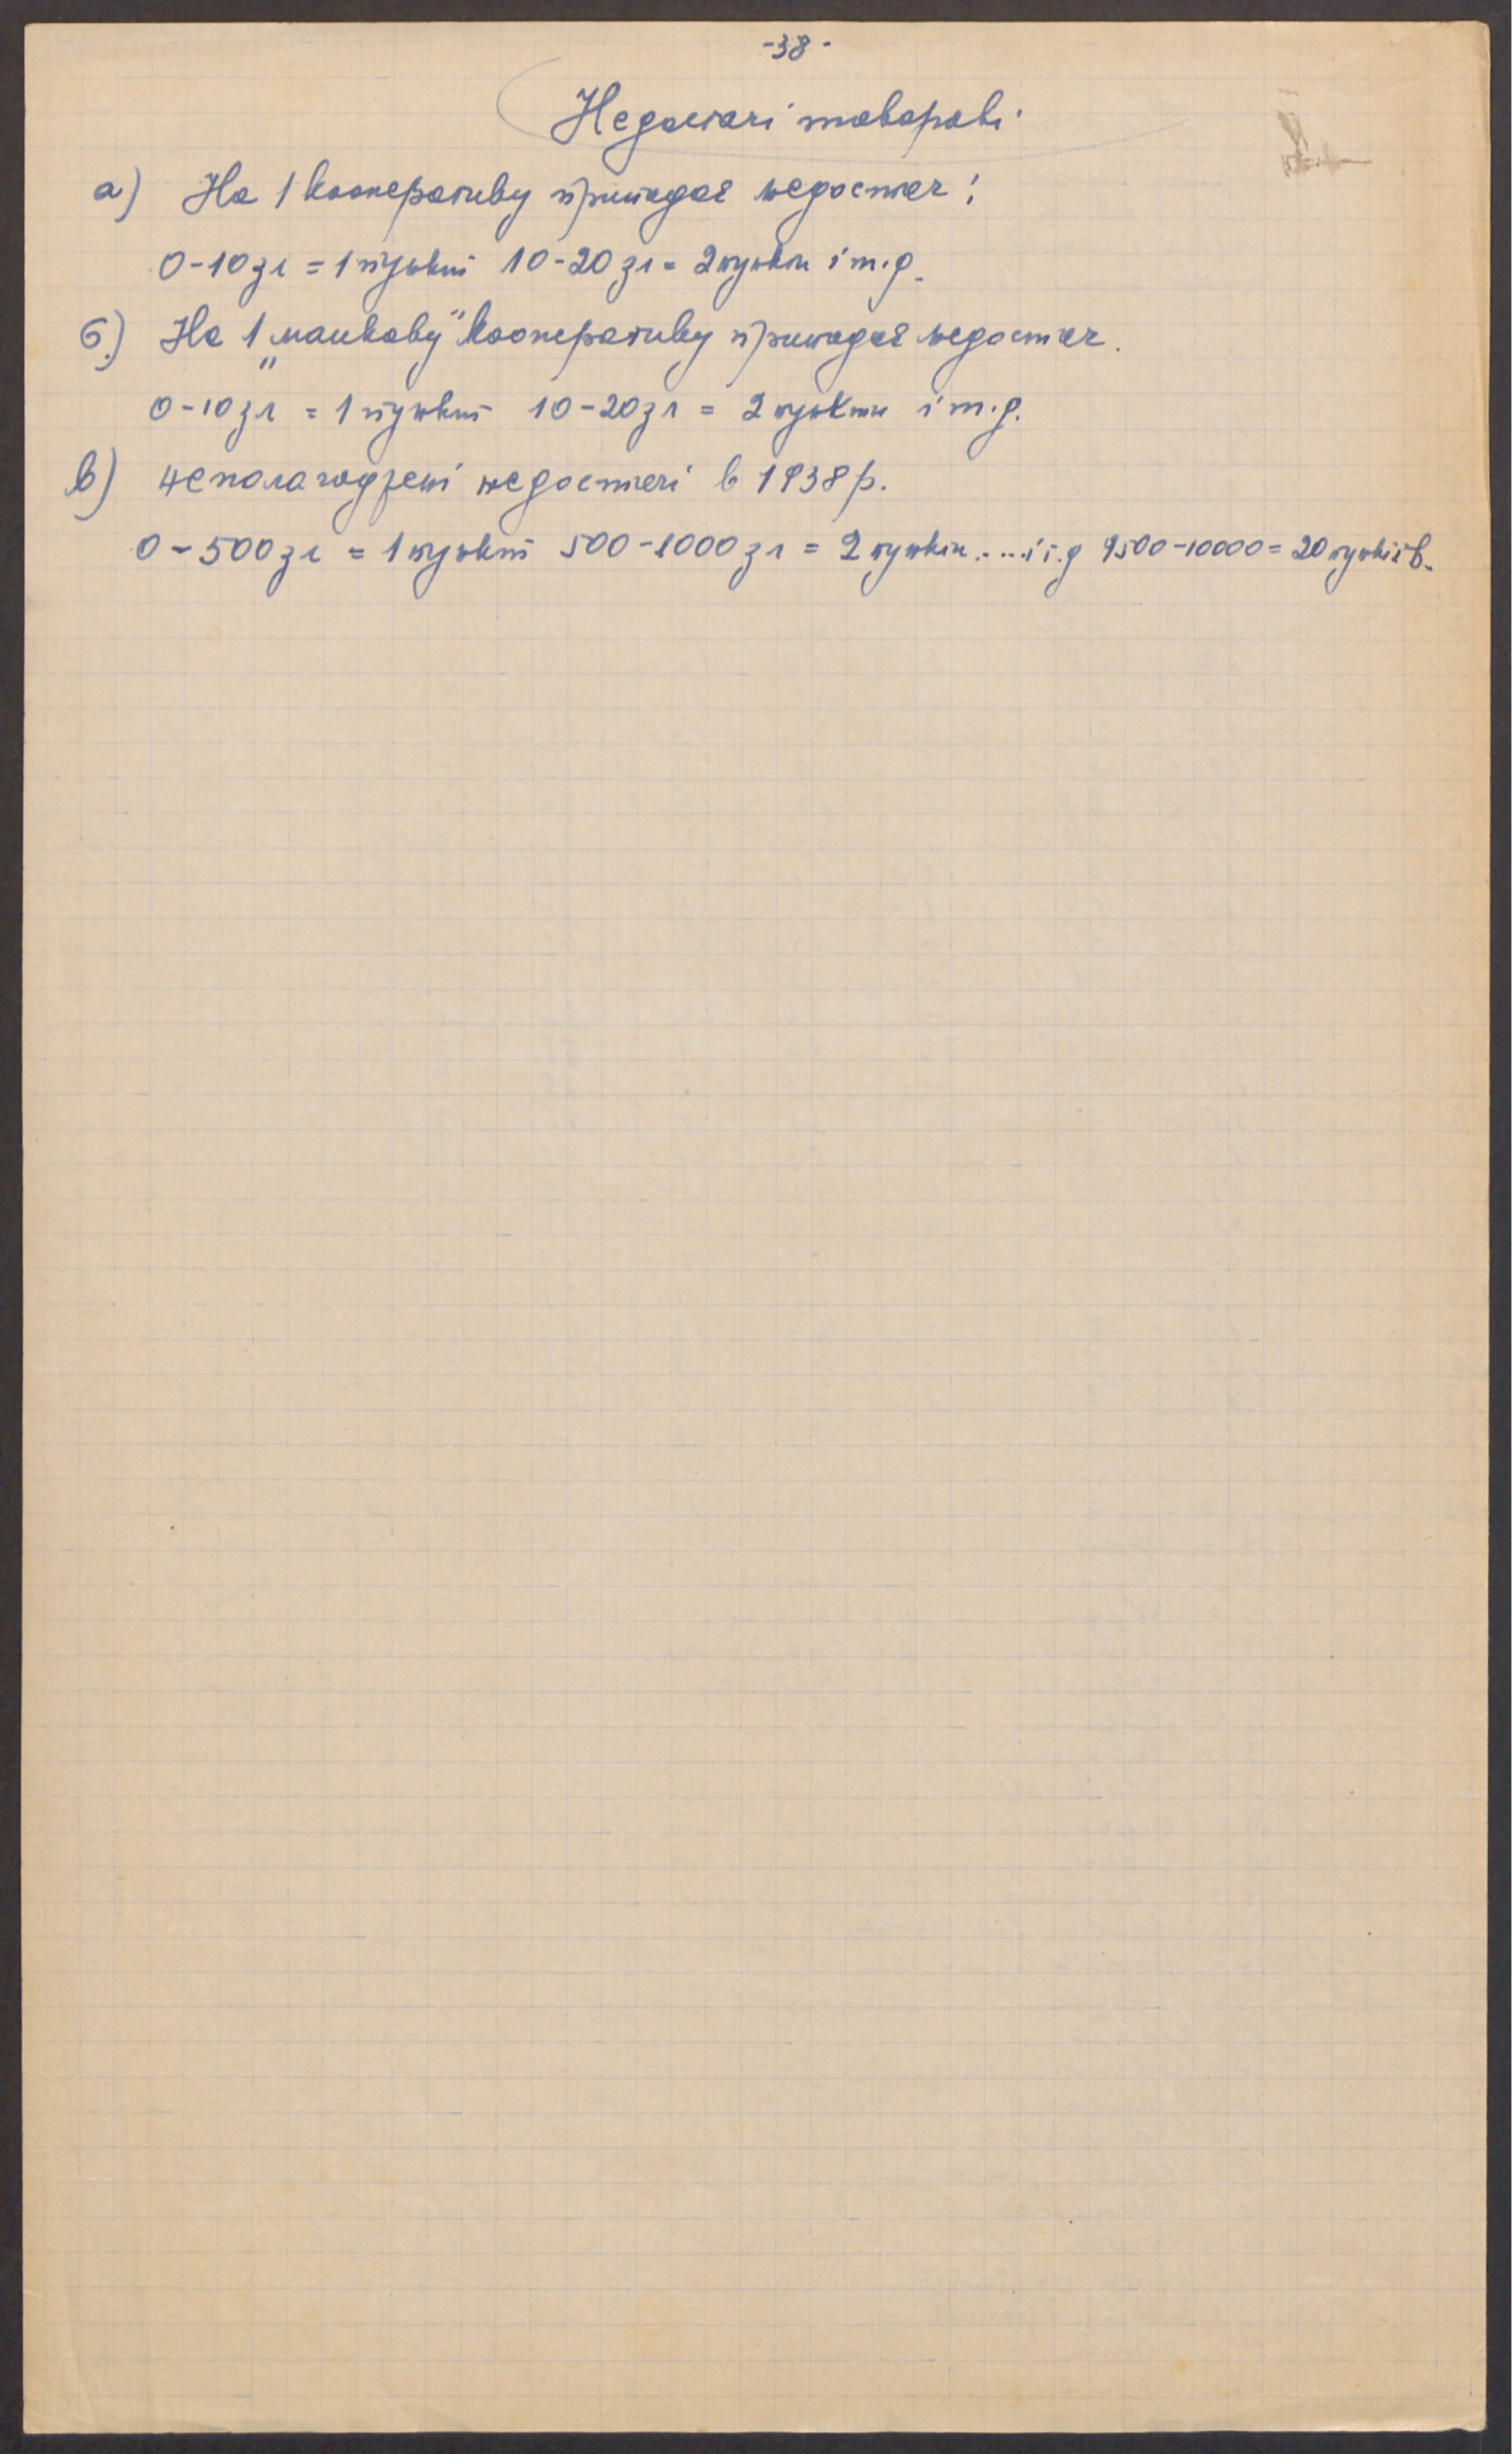 -38-
Недостачі товарові
а) На 1 кооперативу припадає недостач:
0-10 зл = 1 пункт 10-20 зл = 2 пункти і т.д.
б) На 1 „манкову" кооперативу припадає недостач.
0-10 зл = 1 пункт 10-20 зл = 2 пункти і т.д.
в) неполагоджені недостачі в 1938 р.
0-500 зл = 1 пункт 500-1000 зл = 2 пункти.....і т.д 9500-10000 = 20 пунктів.